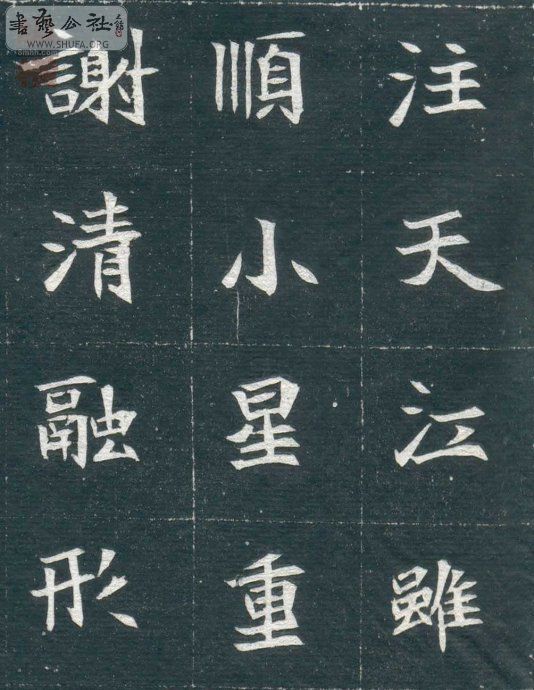 注天江雖
順小星重
謝清融形
書藝公社
WWW.SHUFA.ORG